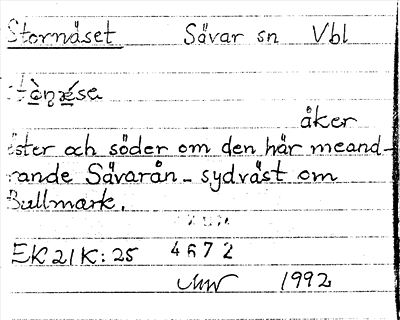 Stornäset Sävar sn Vbl
åker
öster och söder om den här meand-
rande Sävarån - sydväst om
Bullmark.
EK 21K: 25 4672
1992